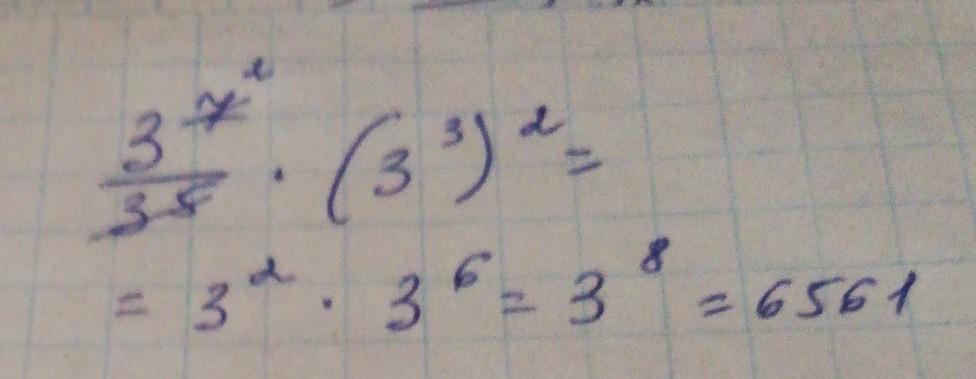 3^7^2 / 3^5 · (3^3)^2 =
= 3^2 · 3^6 = 3^8 = 6561